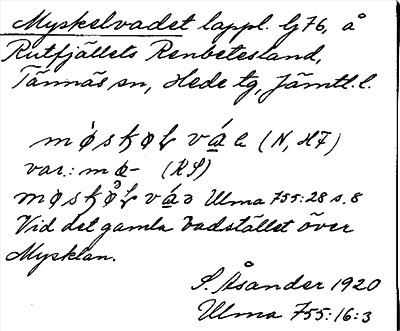 Myskelvadet lappl. lj 76, å
Rutfjällets Renbetesland,
Tännäs sn, Hede tg, Jämtl. l.
(N, HF)
var.: mø- (KS)
Ulma 755:28 s. 8
Vid det gamla vadstället över
Mysklan.
S. Åsander 1920
Ulma 755:16:3